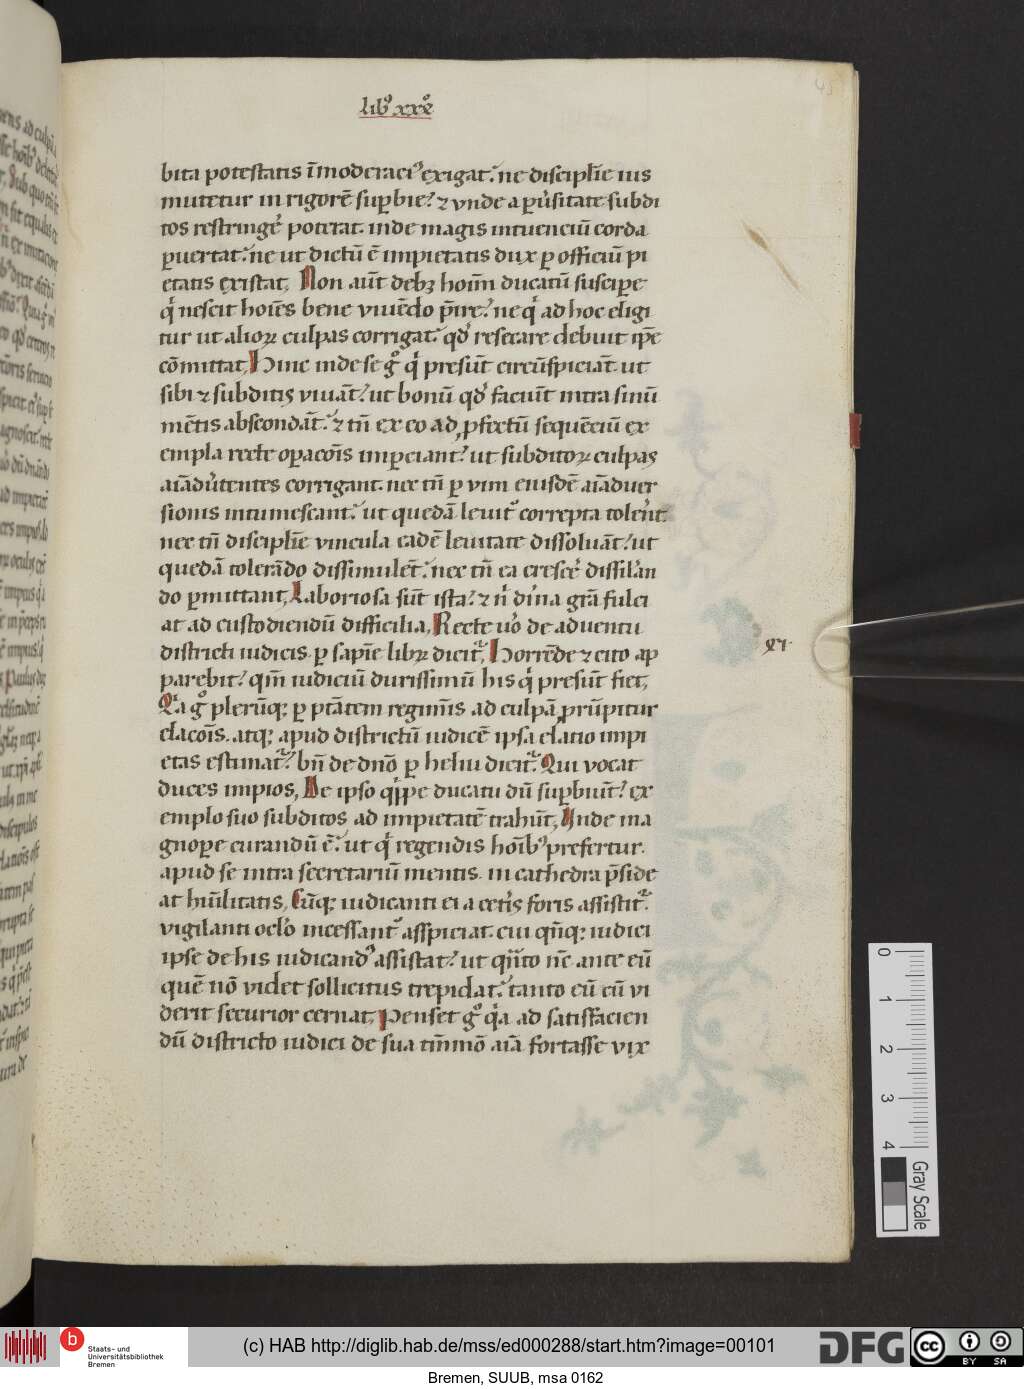 libꝰ xxxꝰ
bita potestatis īmoderaciꝰ exigat. ne disciplīe ius
mutetur in rigorē suꝑbie? ⁊ vnde a ꝑūsitate subdi
tos restringē poterat. inde magis intuenciū corda
ꝑuertat. ne ut dictū ē impietatis dux ꝑ officiū pi
etatis existat, Non aūt debꝫ hoīm ducatū susciꝑe
qͥ nescit hoīes bene viuēdo p̄ire? ne qͥ ad hoc eligi
tur ut alioꝝ culpas corrigat. qd' resecare debuit ip̄e
cōmittat, Hinc inde se gͦ qͥ presūt circūspiciāt. ut
sibi ⁊ subditis viuāt? ut bonū qd' faciūt intra sinū
mētis abscondāt. ⁊ tn̄ ex eo ad ꝓfectū sequēciū ex
empla recte oꝑacoīs imꝑciant? ut subditoꝝ culpas
aiād'utentes corrigant. nec tn̄ ꝑ vim eiusdē aīaduer
sionis intumescant. ut quedā leuit' correpta tolēnt
nec tn̄ disciplīe vincula eadē leuitate dissoluāt? ut
quedā tolerādo dissimulēt. nec tn̄ ea crescē dissil'an
do ꝑmittant, Laboriosa sūt ista? ⁊ nͥ diīna grā fulci
at ad custodiendū difficilia, Recte u'o de aduentu
districti iudicis. ꝑ sapīe librꝫ dicit', Horrēde ⁊ cito ap
xi
parebit? qm̄ iudiciū durissimū his qͥ presūt fiet,
Qͥa gͦ plerūqꝫ ꝑ ptātem regimīs ad culpā ꝓrūpitur
elacoīs. atqꝫ apud districtū iudicē ipsa elatio impi
etas estimat'? bn̄ de dn̄o ꝑ heliu dicit'. Qui vocat
duces impios, De ipso qͥppe ducatu dū suꝑbiūt? ex
emplo suo subditos ad impietatē trahūt, Vnde ma
gnoꝑe curandū ē. ut qͥ regendis hoībꝰ prefertur.
apud se intra secretariū mentis. in cathedra p̄side
at hūilitatis, Cūqꝫ iudicanti ei a cet'is foris assistit'.
vigilanti ocl'o incessant' asspiciat. cui qn̄qꝫ iudici
ipse de his iudicandꝰ assistat? ut qn̄to nc̄ ante eū
quē nō videt sollicitus trepidat. tanto eū cū vi
derit securior cernat, Penset gͦ qͥa ad satisfacien
dū districto iudici de sua tm̄mō aīa fortasse vix
0
1
2
3
4
Gray Scale
b Staats- und
Universitätsbibliothek
Bremen
(c) HAB http://diglib.hab.de/mss/ed000288/start.htm?image=00101
DFG
cc BY SA
Bremen, SUUB, msa 0162